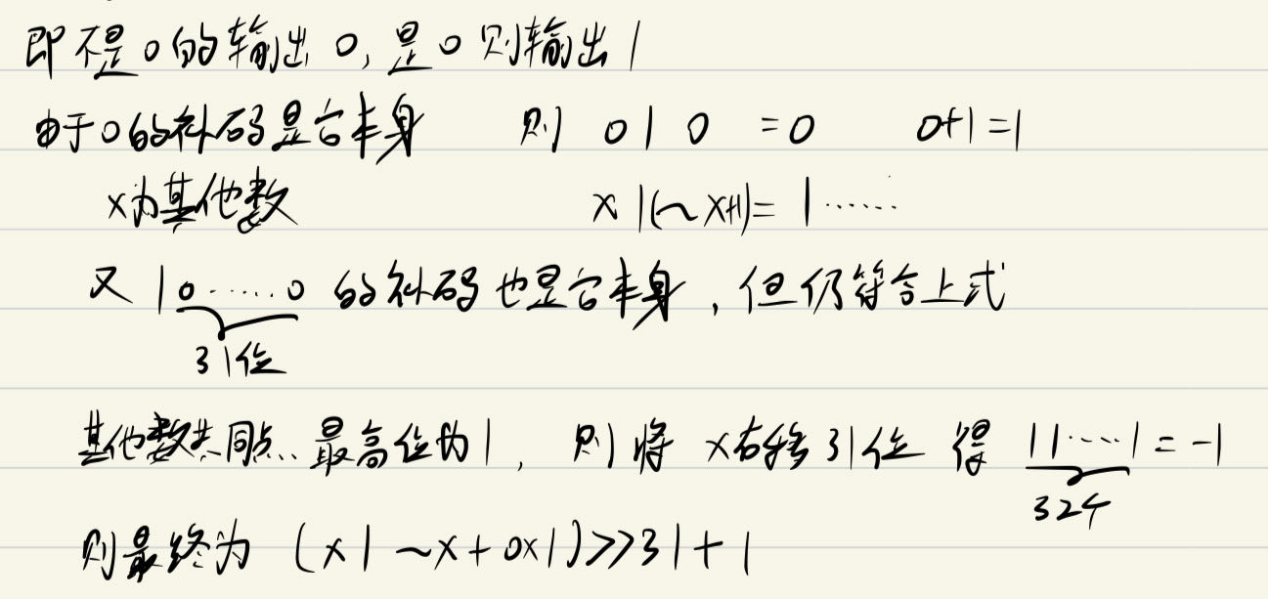 即不是0的输出0,是0则输出1
由于0的补码是它本身 则 0|0 =0 0+1=1
x为其他数 x|(~x+1)= 1······
又 10·····0 的补码也是它本身,但仍符合上式
31位
其他数共同点..最高位为1, 则将 x右移31位 得 11····1 = -1
32个
则最终为 (x|~x+0x1)>>31+1